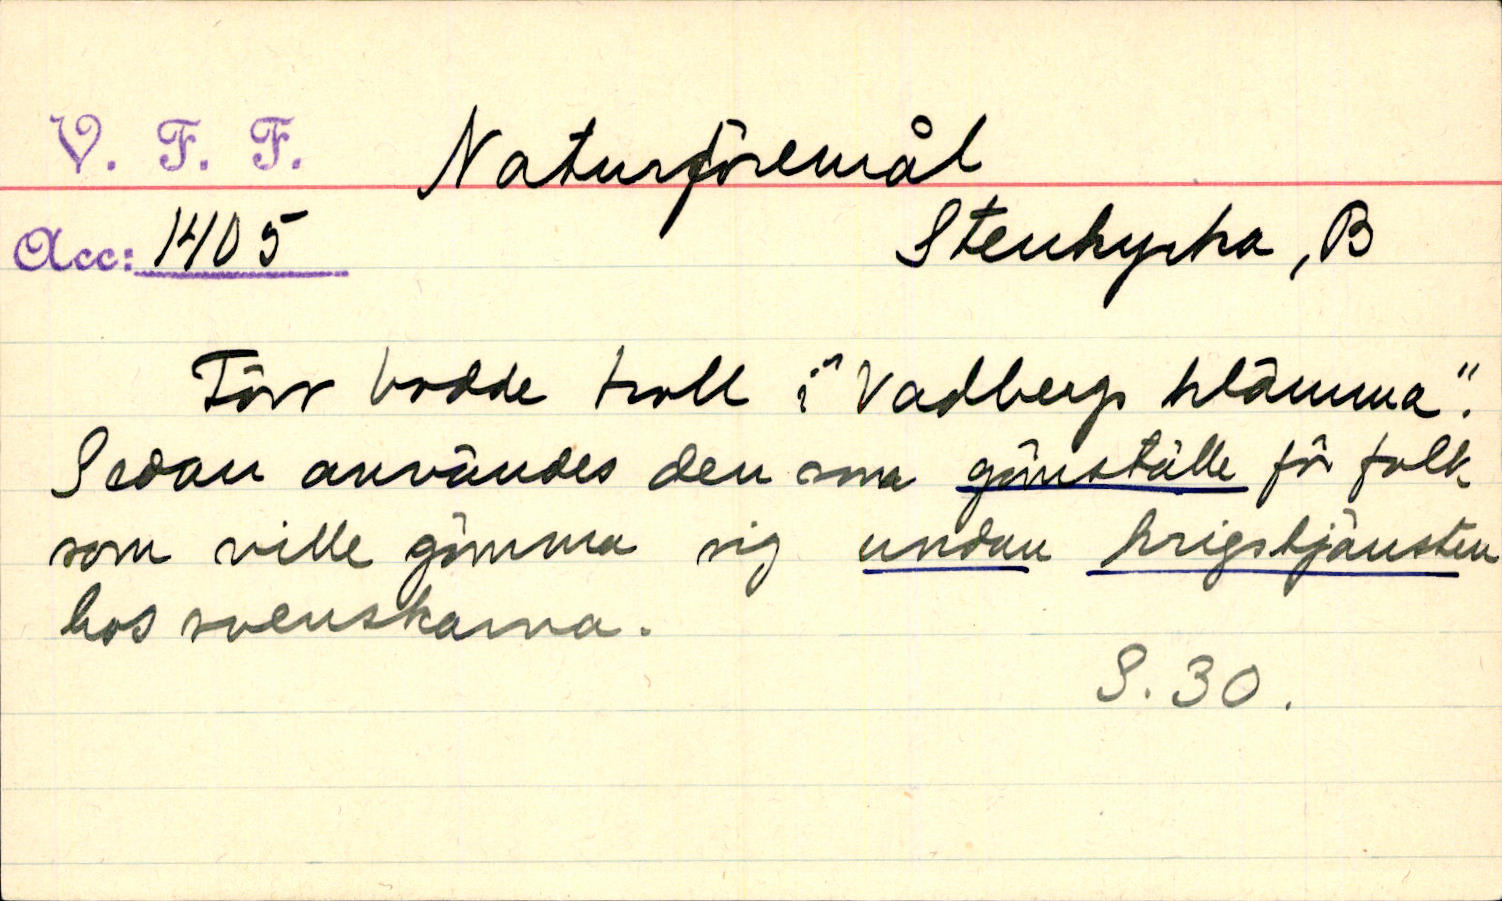 V. F. F. Naturföremål
Acc: 1405 Stenkyrka, B
Förr bodde troll i "Vadbergs klämma".
Sedan användes den som gömställe för folk
som ville gömma sig undan krigstjänsten
hos svenskarna.
S. 30.